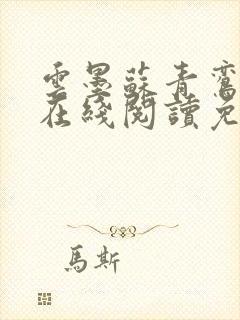 雲墨蘇青鸞
在綫閱讀免
馬斯